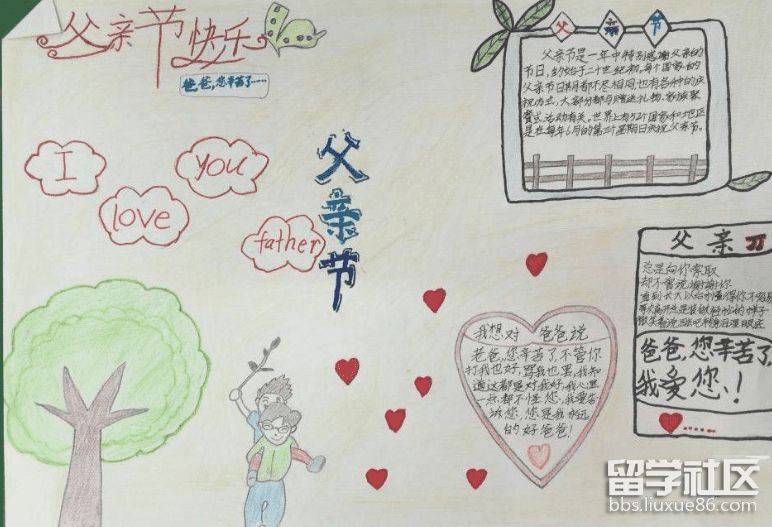 父亲节快乐
爸爸,您辛苦了……
I
love
you
father
父亲节
父 亲 节
父亲节是一年中特别感谢父亲的
节日,约始于二十世纪初,每个国家的
父亲节日期都不尽相同也有各种的庆
祝方式,大部分都与赠送礼物、家族聚
餐或活动有关。世界上有52个国家和地区
是在每年6月的第三个星期日庆祝父亲节。
我想对 爸爸说
爸爸,您辛苦了,不管你
打我也好,骂我也罢,我知
道这都是对我好,我心里
一点都不怪您,我爱
您,您是我永远
的好爸爸!
父亲
总是向你索取
却不曾说谢谢你
直到长大以后才懂得你不容易
爸爸,您辛苦了
我爱您、!
留学社区
bbs.liuxue86.com